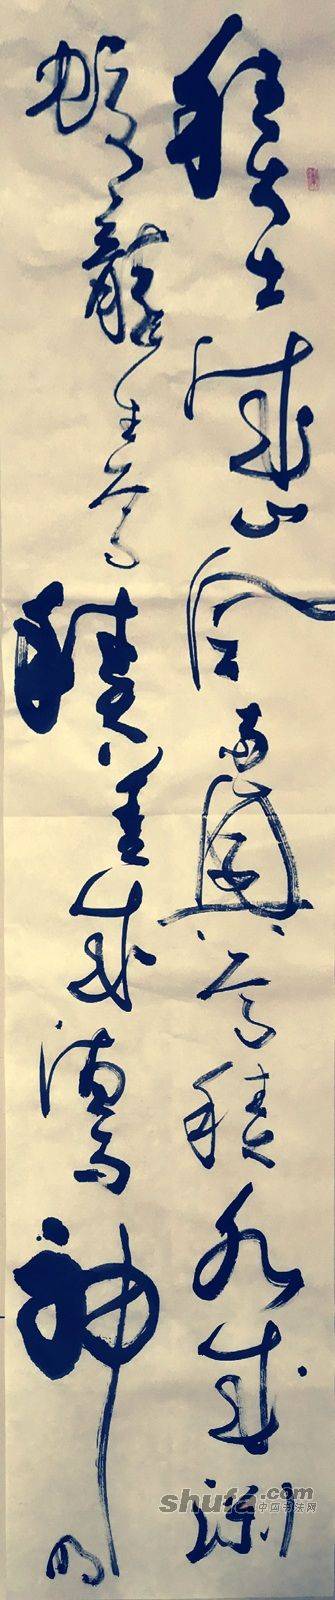 積土成山風雨興焉積水成淵
蛟龍生焉積善成德而神明
shufa.com
中国书法网